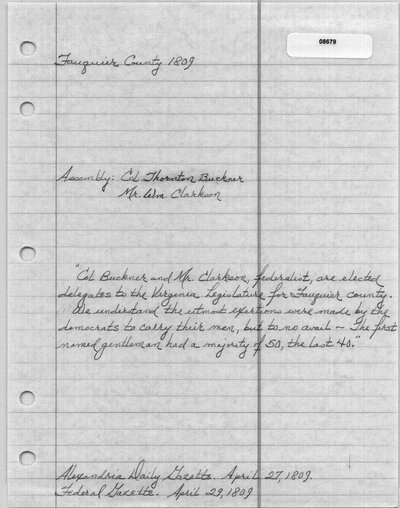 08679
Fauquier County 1809
Assembly: Col Thornton Buckner
Mr. Wm. Clarkson
"Col Buckner and Mr. Clarkson, federalist, are elected
delegates to the Virginia Legislature for Fauquier County.
We understand the utmost exertions were made by the
democrats to carry their men, but to no avail - The first
named gentleman had a majority of 50, the last 40."
Alexandria Daily Gazette. April 27, 1809.
Federal Gazette. April 29, 1809